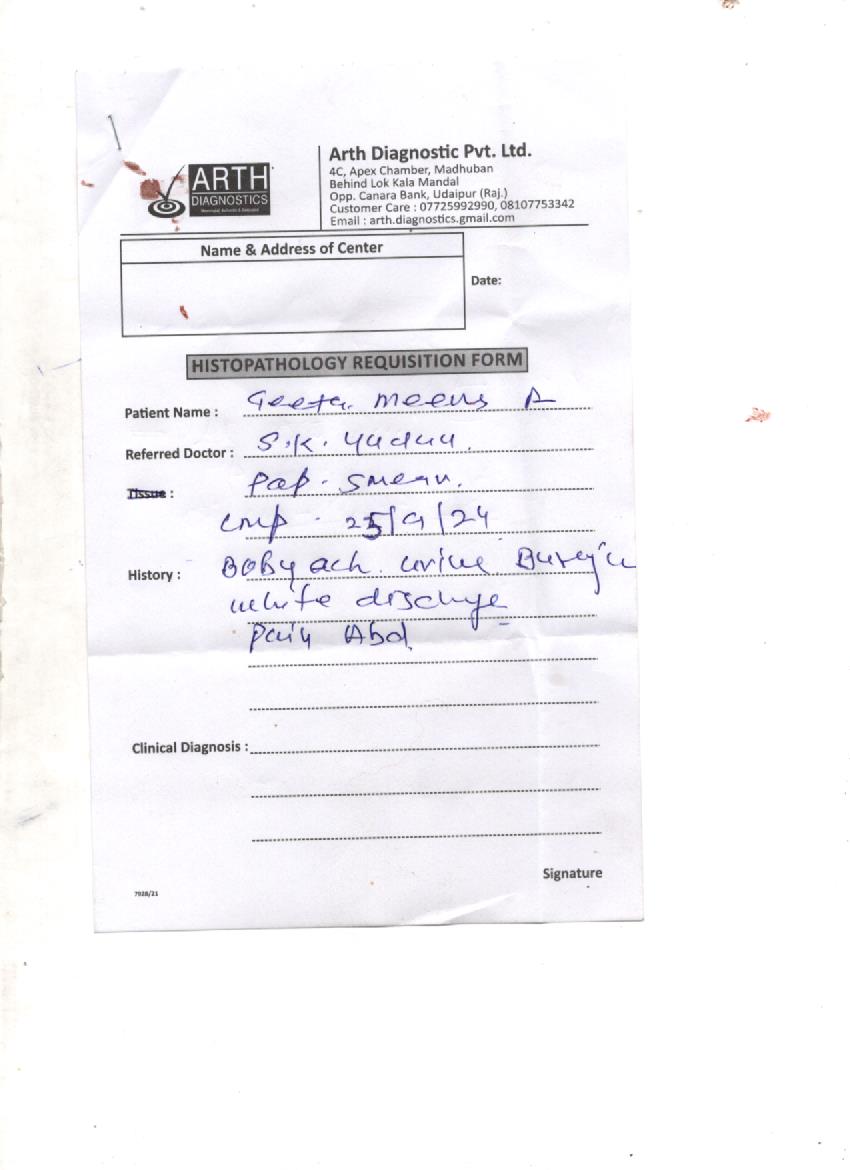 ARTH
DIAGNOSTICS
Arth Diagnostic Pvt. Ltd.
4C, Apex Chamber, Madhuban
Behind Lok Kala Mandal
Opp. Canara Bank, Udaipur (Raj.)
Customer Care : 07725992990, 08107753342
Email : arth.diagnostics.gmail.com
Name & Address of Center
Date:
HISTOPATHOLOGY REQUISITION FORM
Patient Name : Geeta Meena
Referred Doctor : S.K. Yadav.
Tissue : Pap. Smear.
LMP . 25/9/24
History : Body ach. urine
white discharge
Pain Abd
Clinical Diagnosis :
Signature
7928/21